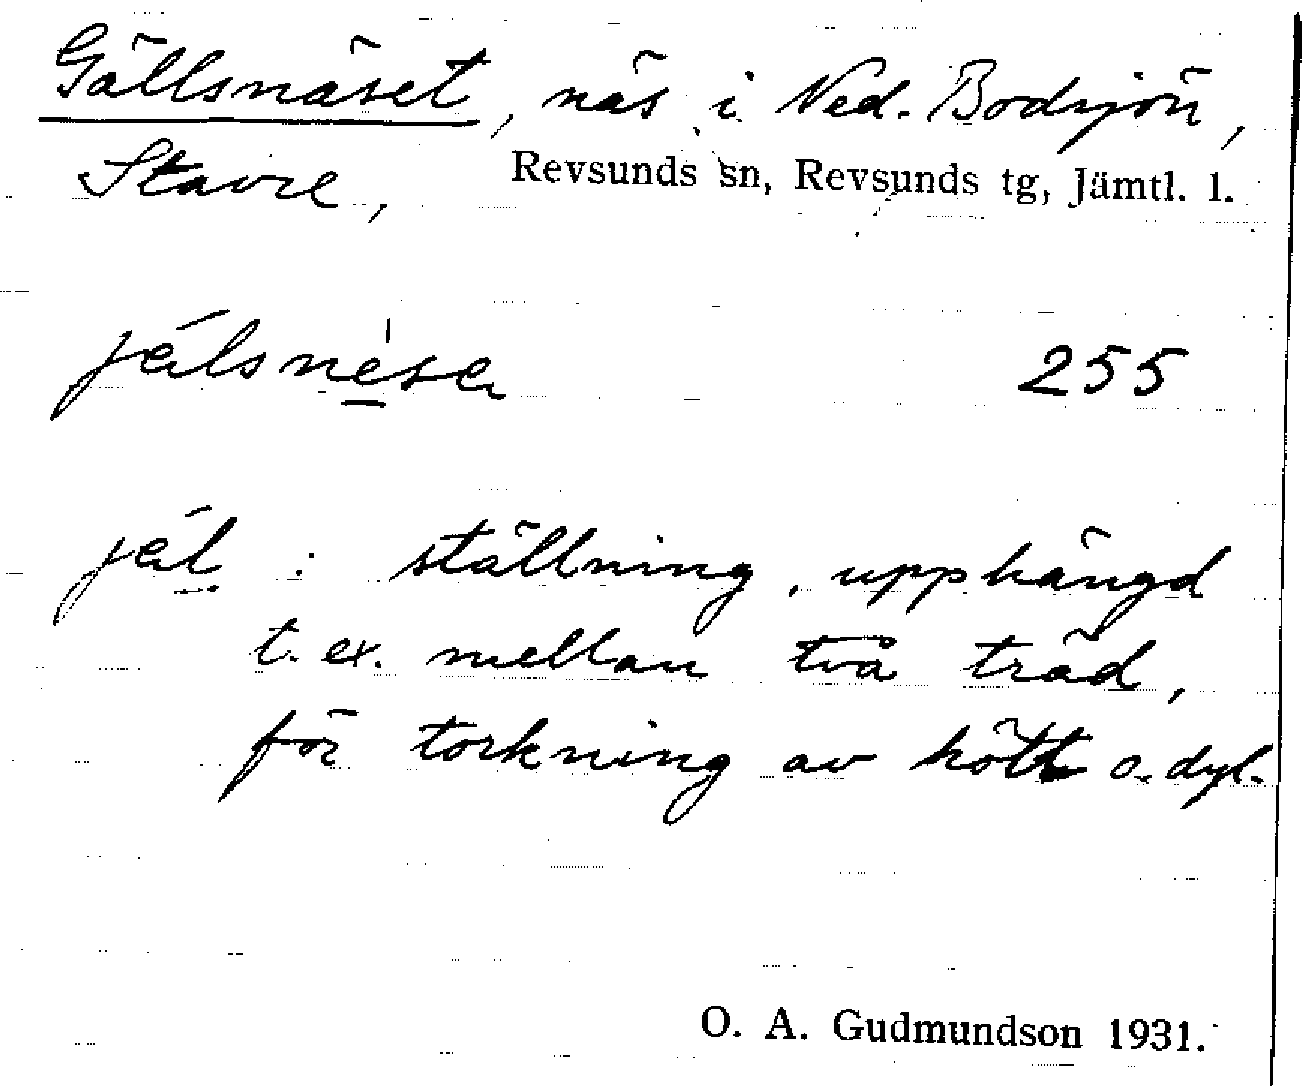 Gällsnäset, näs i Ned. Bodsjön,
Stavre, Revsunds sn, Revsunds tg, Jämtl. l.
jälsnèsa 255
jäl : ställning, upphängd
t. ex. mellan två träd,
för torkning av kött o. dyl.
O. A. Gudmundson 1931.